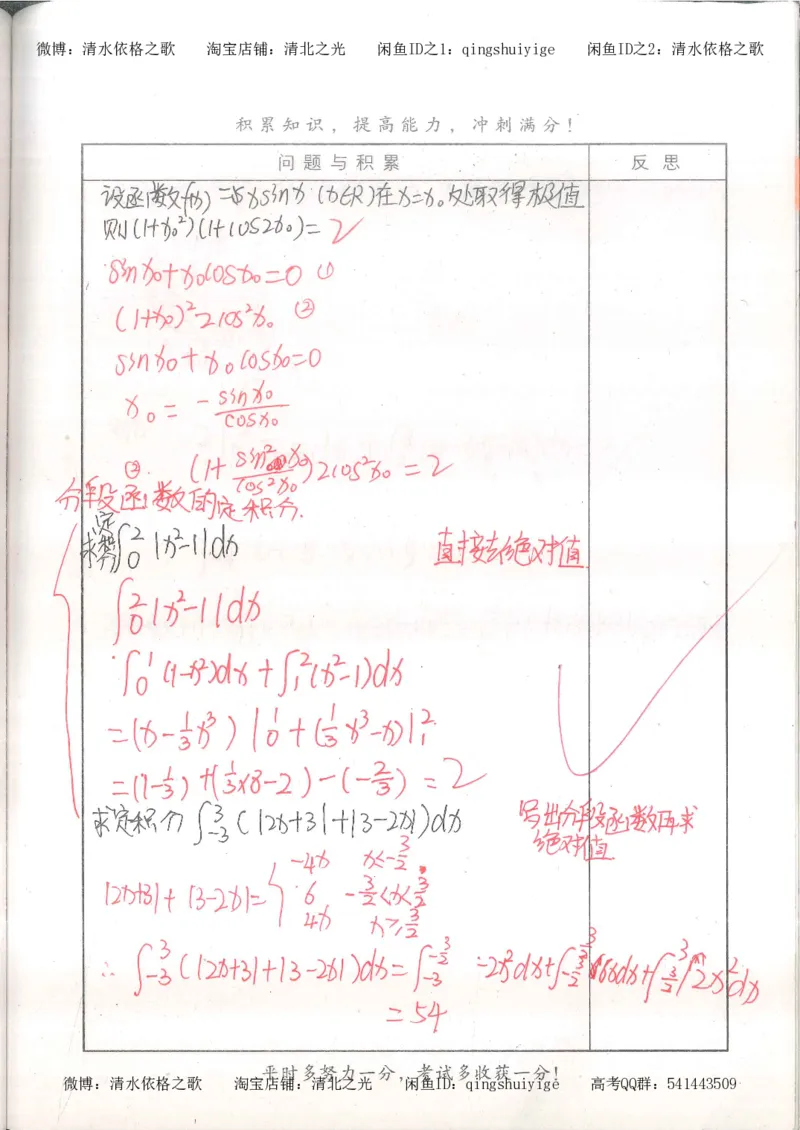 微博：清水依格之歌 淘宝店铺：清北之光 闲鱼ID之1：qingshuiyige 闲鱼ID之2：清水依格之歌
积累知识，提高能力，冲刺满分！
问题与积累 反思
设函数f(x)=5xsinx (x∈R)在x=x₀处取得极值
则(1+x₀²)(1+cos2x₀)=2
sinx₀+x₀cosx₀=0 ①
(1+x₀)²2cos²x₀ ②
sinx₀+x₀cosx₀=0
x₀=-sinx₀/cosx₀
② (1+sin²x₀/cos²x₀)2cos²x₀=2
分段函数的定积分.
求定∫₀²|x²-1|dx 直接去绝对值
∫₀²|x²-1|dx
∫₀¹(1-x²)dx+∫₁²(x²-1)dx
=(x-1/3x³)|₀¹+(1/3x³-x)|₁²
=(1-1/3)+(1/3×8-2)-(-2/3)=2
求定积分∫₋₃³(|2x+3|+|3-2x|)dx 写出分段函数再求
绝对值
|2x+3|+|3-2x|={ -4x x<-3/2
6 -3/2<x<3/2
4x x≥3/2
∴∫₋₃³(|2x+3|+|3-2x|)dx=
=54
平时多努力一分，考试多收获一分！
微博：清水依格之歌 淘宝店铺：清北之光 闲鱼ID：qingshuiyige 高考QQ群：541443509